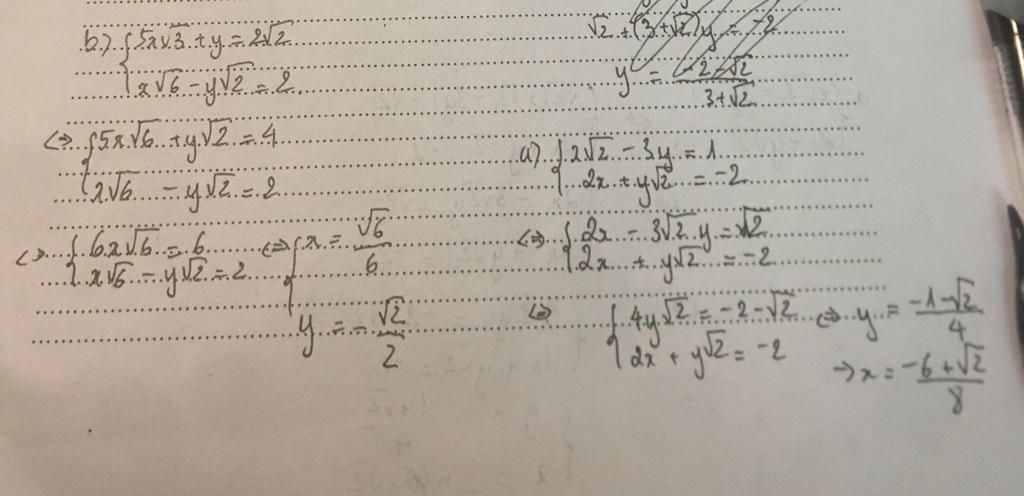 b) { 5x√3 + y = 2√2
x√6 - y√2 = 2
<=> { 5x√6 + y√2 = 4
x√6 - y√2 = 2
<=> { 6x√6 = 6
x√6 - y√2 = 2
<=> { x = √6/6
y = -√2/2
√2 + (3+√2)y = -2
y = (-2-√2)/(3+√2)
a) { x√2 - 3y = 1
2x + y√2 = -2
<=> { 2x - 3√2 y = √2
2x + y√2 = -2
<=> { 4y√2 = -2-√2
2x + y√2 = -2
<=> y = (-1-√2)/4
→ x = (-6+√2)/8